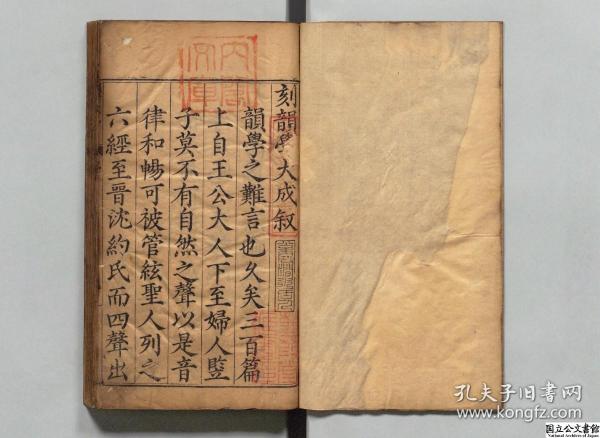 刻韻學大成叙
韻學之難言也久矣三百篇
上自王公大人下至婦人豎
子莫不有自然之聲以是音
律和暢可被管絃聖人列之
六經至晉沈約氏而四聲出
內閣文庫
孔夫子旧书网
www.kongfz.com
国立公文書館
National Archives of Japan